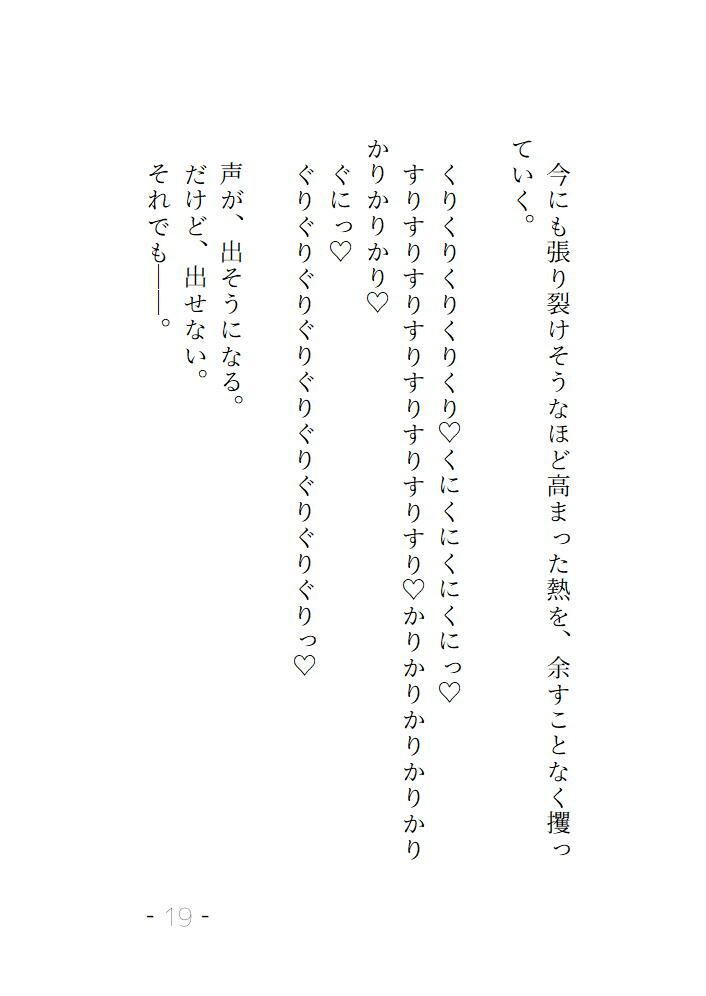 今にも張り裂けそうなほど高まった熱を、余すことなく攫っ
ていく。
　くりくりくりくりくり♡くにくにくにくにっ♡
　すりすりすりすりすりすりすりすり♡かりかりかりかりかり
かりかりかり♡
　ぐにっ♡
　ぐりぐりぐりぐりぐりぐりぐりぐりぐりっ♡
　声が、出そうになる。
　だけど、出せない。
　それでも――。
- 19 -